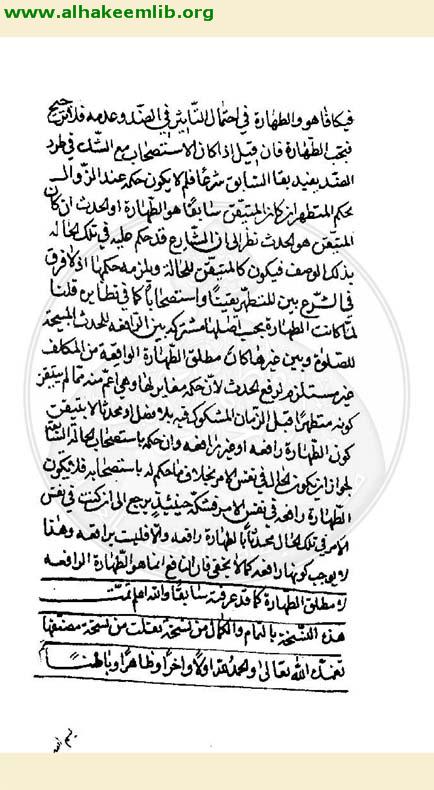 www.alhakeemlib.org
فيكافا هو والطهارة في احتمال التأثير في الضد وعدمه فلا ترجيح
فيجب الطهارة فان قيل اذا كان الاستصحاب مع الشك في طرد
الضد يفيد بقا السابق شرعا فلم لا يكون حكمه عند المزوالـ
بحكم المتطهر ان كان المتيقن سابقا هو الطهارة او الحدث ان كان
المتيقن هو الحدث نظر الى ان الشارع قد حكم عليه في تلك الحاله
بذلك الوصف فيكون كالمتيقن للحالة ويلزمه حكمها اذ لا فرق
في الشرع بين المتطهر يقينا واستصحابا كما في نظايره قلنا
لما كانت الطهارة بحسب اصلها مشتركه بين الرافعه للحدث المبيحة
للصلوة وبين غيرها كان مطلق الطهارة الواقعة من المكلف
غير مستلزم لرفع الحدث لان حكمه مغاير لها وهي اعم منه فما لم يتيقن
كونه متطهرا قبل الزمان المشكوك فيه بلا فصل او محدثا لا يتيقن
كون الطهارة رافعه او غير رافعه وان حكم باستصحاب الحالة السابقة
لجواز ان يكون الحال في نفس الامر بخلاف ما حكم له باستصحابه فلا يكون
الطهارة رافعه في نفس الامر فشكه حينئذ يرجع الى ان كنت في نفس
الامر في تلك الحال محدثا فالطهارة رافعه والا فليست برافعه وهذا
لا يوجب كونها رافعه كما لا يخفى فان النافع انما هو الطهارة الرافعه
لا مطلق الطهارة كما قد عرفته سابقا والله اعلم تمت
هذه النسخة بالتمام والكمال من نسخة نقلت من نسخة مصنفها
تغمده الله تعالى والحمد لله اولا واخرا وظاهرا وباطنا